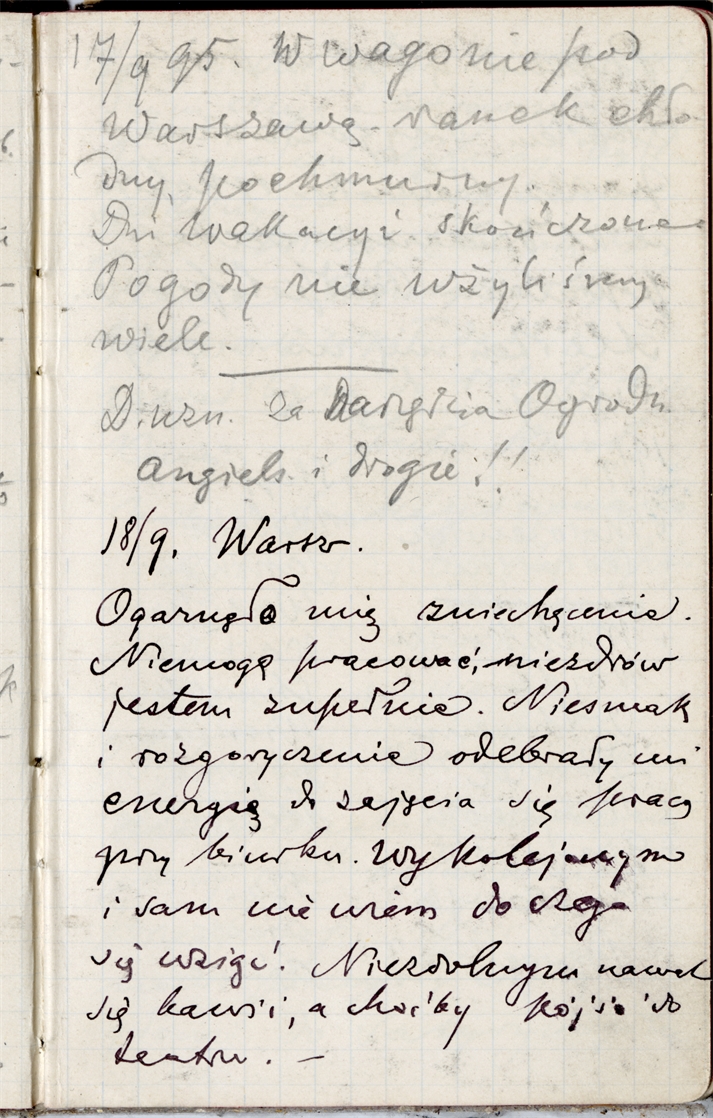 17/9 95. W wagonie pod
Warszawą. ranek chło
dny, pochmurny.
Dni wakacyi skończone
Pogody nie użyliśmy
wiele.
D. uzn. za Ogrodu
angiels. i drogie!!
18/9. Warsz.
Ogarnęło mię zniechęcenie.
Niemogę pracować, niezdrów
jestem zupełnie. Niesmak
i rozgoryczenie odebrały mi
energię do zajęcia się pracą
przy biurku. Wykolejonym
i sam nie wiem do czego
się wziąć. Niezdolnym nawet
się bawić, a choćby pójść do
teatru. –